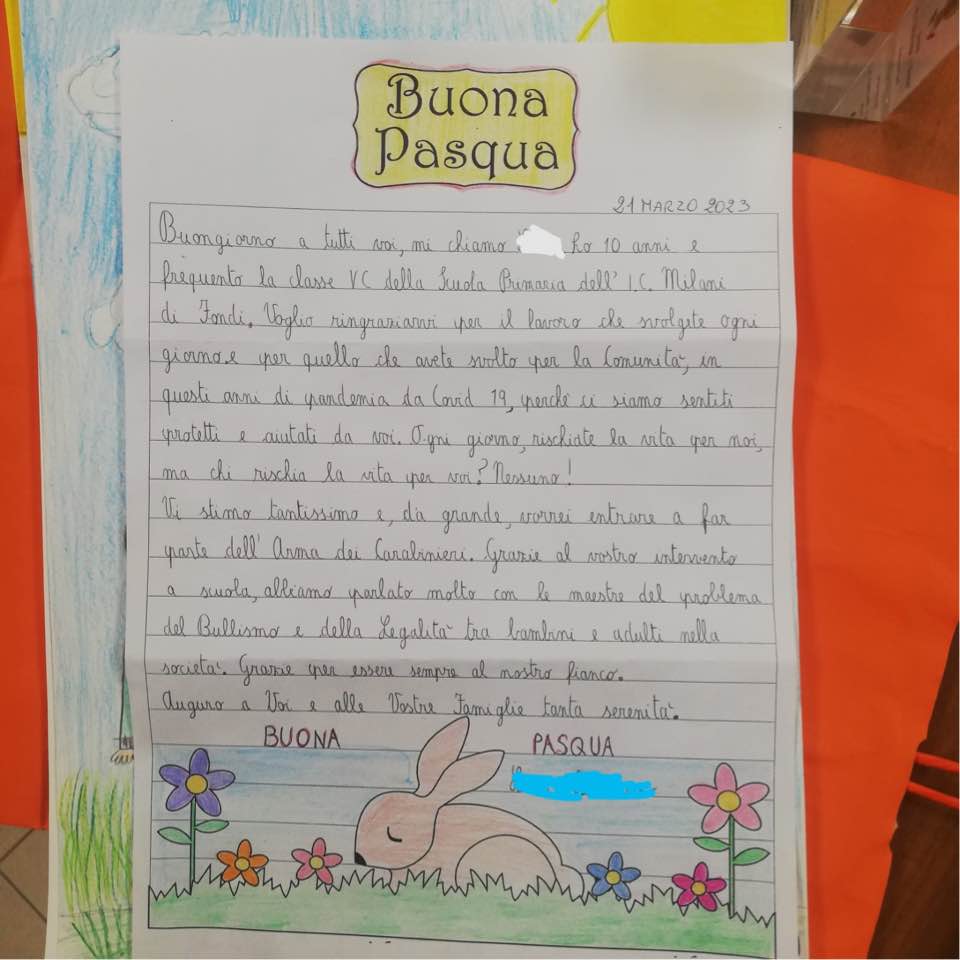 Buona
Pasqua
21 MARZO 2023
Buongiorno a tutti voi, mi chiamo ho 10 anni e
frequento la classe VC della Scuola Primaria dell' I.C. Milani
di Fondi. Voglio ringraziarvi per il lavoro che svolgete ogni
giorno.e per quello che avete svolto per la Comunità, in
questi anni di pandemia da Covid 19, perchè ci siamo sentiti
protetti e aiutati da voi. Ogni giorno, rischiate la vita per noi,
ma chi rischia la vita per voi? Nessuno!
Vi stimo tantissimo e, da grande, vorrei entrare a far
parte dell' Arma dei Carabinieri. Grazie al vostro intervento
a scuola, abbiamo parlato molto con le maestre del problema
del Bullismo e della Legalità tra bambini e adulti nella
società. Grazie per essere sempre al nostro fianco.
Auguro a Voi e alle Vostre Famiglie tanta serenità.
BUONA PASQUA